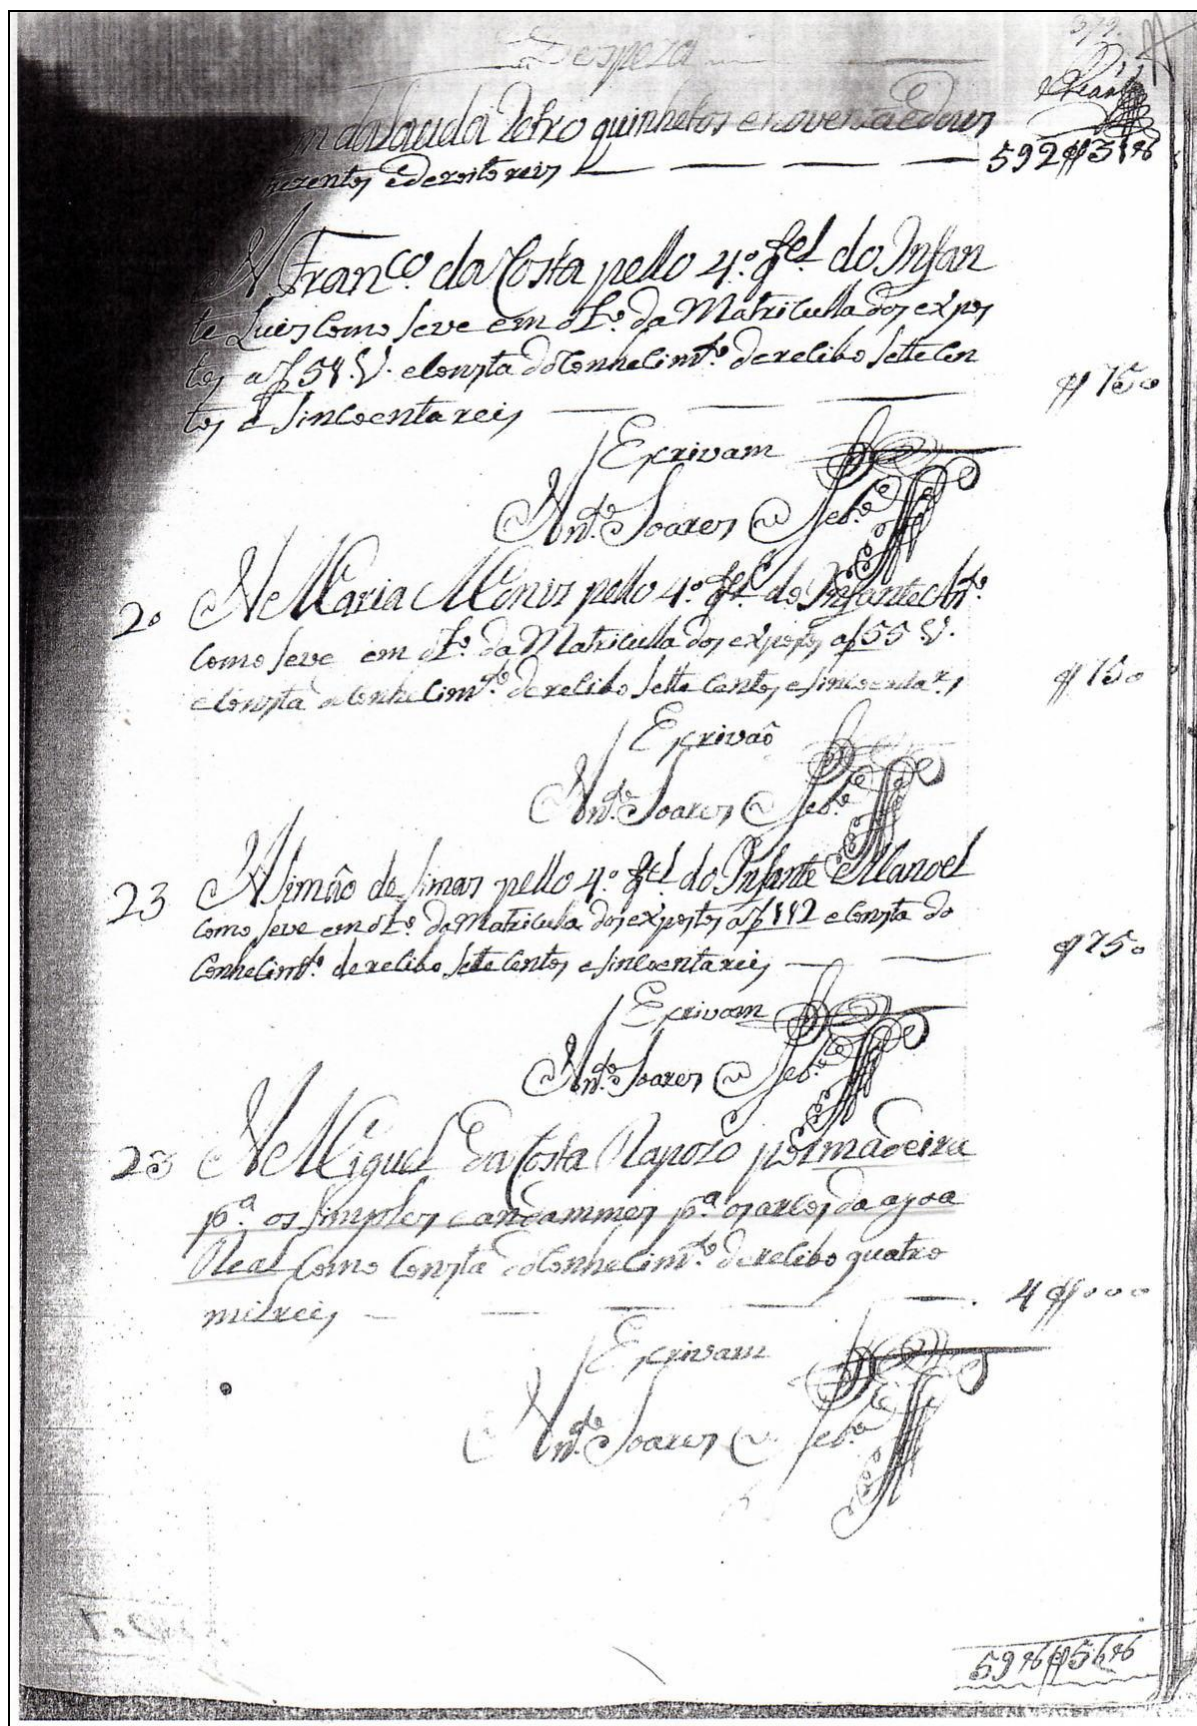 Despeza
m da Lauda Retro quinhetos e noventa e dous
trezentos e dezoito reis 592$318
A Franco. da Costa pello 4.º qel. do Infan
te Luis Como se ve em o Lo. da Matriculla dos expos
tos a f 58 V. e Consta do Conhecimto. de recibo sette cen
tos e sincoenta reis $750
Escrivam
Anto. Soares
20 A Maria Moniz pello 4.º qel. do Infante Anto.
Como se ve em o Lo. da Matriculla dos expostos a f 55 V.
e Consta do Conhecimto. de recibo sette centos e sincoenta rs $750
Escrivaõ
Anto. Soares
23 A Simão de Simas pello 4.º qel. do Infante Manoel
Como se ve em o Lo. da Matricula dos expostos a f 112 e Consta do
Conhecimto. de recibo sette centos e sincoenta reis $750
Escrivam
Anto. Soares
23 A Miguel da Costa Raposo por madeira
pa. os simples e andammes pa. os arcos da agoa
Real Como Consta do Conhecimto. de recibo quatro
mil reis 4$000
Escrivam
Anto. Soares
598$568